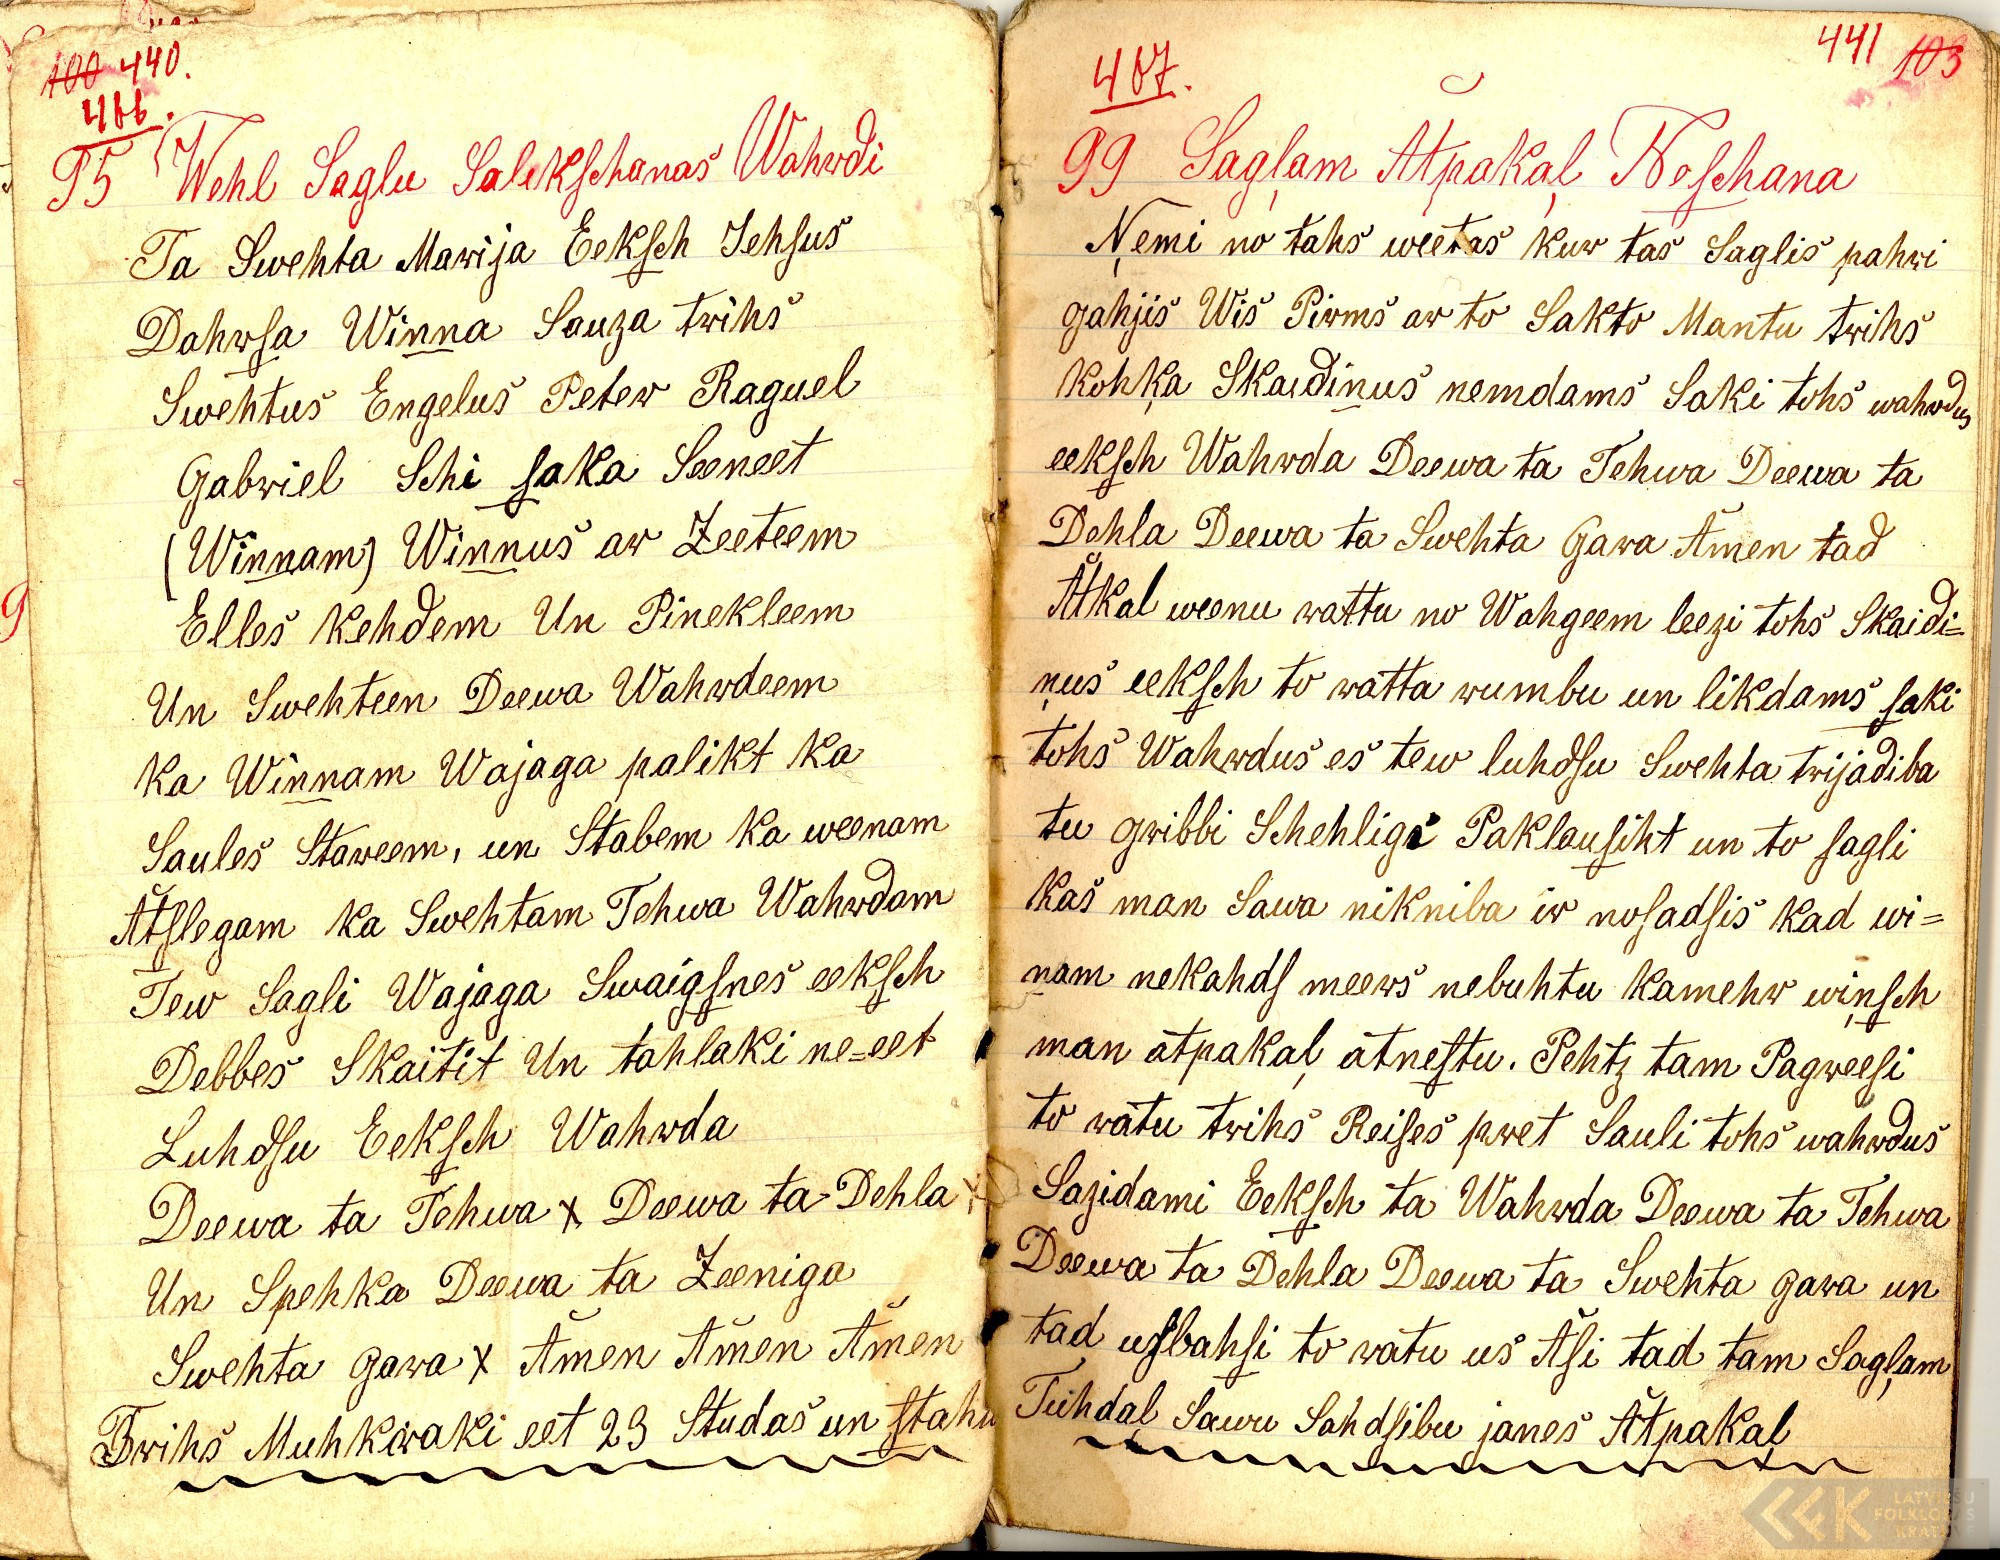 100 440.
466.
95 Wehl Saglu Salekſchanas Wahrdi
Ta Swehta Marija Eekſch Jehſus
Dahrſa Winna Sauza trihs
Swehtus Engelus Peter Raguel
Gabriel Schi ſaka Seeneet
(Winnam) Winnus ar Zeeteem
Elles Kehdem Un Pinekleem
Un Swehteen Deewa Wahrdeem
Ka Winnam Wajaga palikt Ka
Saules Stareem, un Stabem Ka weenam
Atſlegam Ka Swehtam Tehwa Wahrdam
Tew Sagli Wajaga Swaigſnes eekſch
Debbes Skaitit Un tahlaki ne=eet
Luhdſu Eekſch Wahrda
Deewa ta Tehwa x Deewa ta Dehla x
Un Spehka Deewa ta Zeeniga
Swehta gara x Amen Amen Amen
Trihs Muhkiraki eet 23 Studas un ſtahu
467.
441 103
99 Sagļam Atpakaļ Neſchana
Ņemi no tahs weetas kur tas Saglis pahri
gahjis Wis Pirms ar to Sakto Mantu trihs
Kohka Skaidinus nemdams Saki tohs wahrdus
eekſch Wahrda Deewa ta Tehwa Deewa ta
Dehla Deewa ta Swehta Gara Amen tad
Atkal weenu rattu no Wahgeem leezi tohs Skaidi=
ņus eekſch to ratta rumbu un likdams ſaki
tohs Wahrdus es tew luhdſu Swehta trijadiba
tu gribbi Schehligi Paklauſiht un to ſagli
kas man Sawa nikniba ir noſadſis kad wi=
nam nekahdſ meers nebuhtu kamehr wiņſch
man atpakaļ atneſtu. Pehtz tam Pagreeſi
to ratu trihs Reiſes pret Sauli tohs wahrdus
Sazidami Eekſch ta Wahrda Deewa ta Tehwa
Deewa ta Dehla Deewa ta Swehta gara un
tad uſbahſi to ratu us Aſi tad tam Sagļam
Tuhdaļ Sawu Sahdſibu janes Atpakaļ
LATVIEŠU
FOLKLORAS
KRĀTUVE